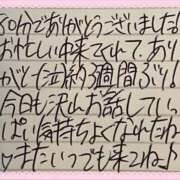 50分でありがとうございました!
お忙しい中来てくれてあり
がと! 約3週間ぶり!
今日も沢山お話していっ
ぱい気持ちよくなれたね
♡またいつでも来てね♪